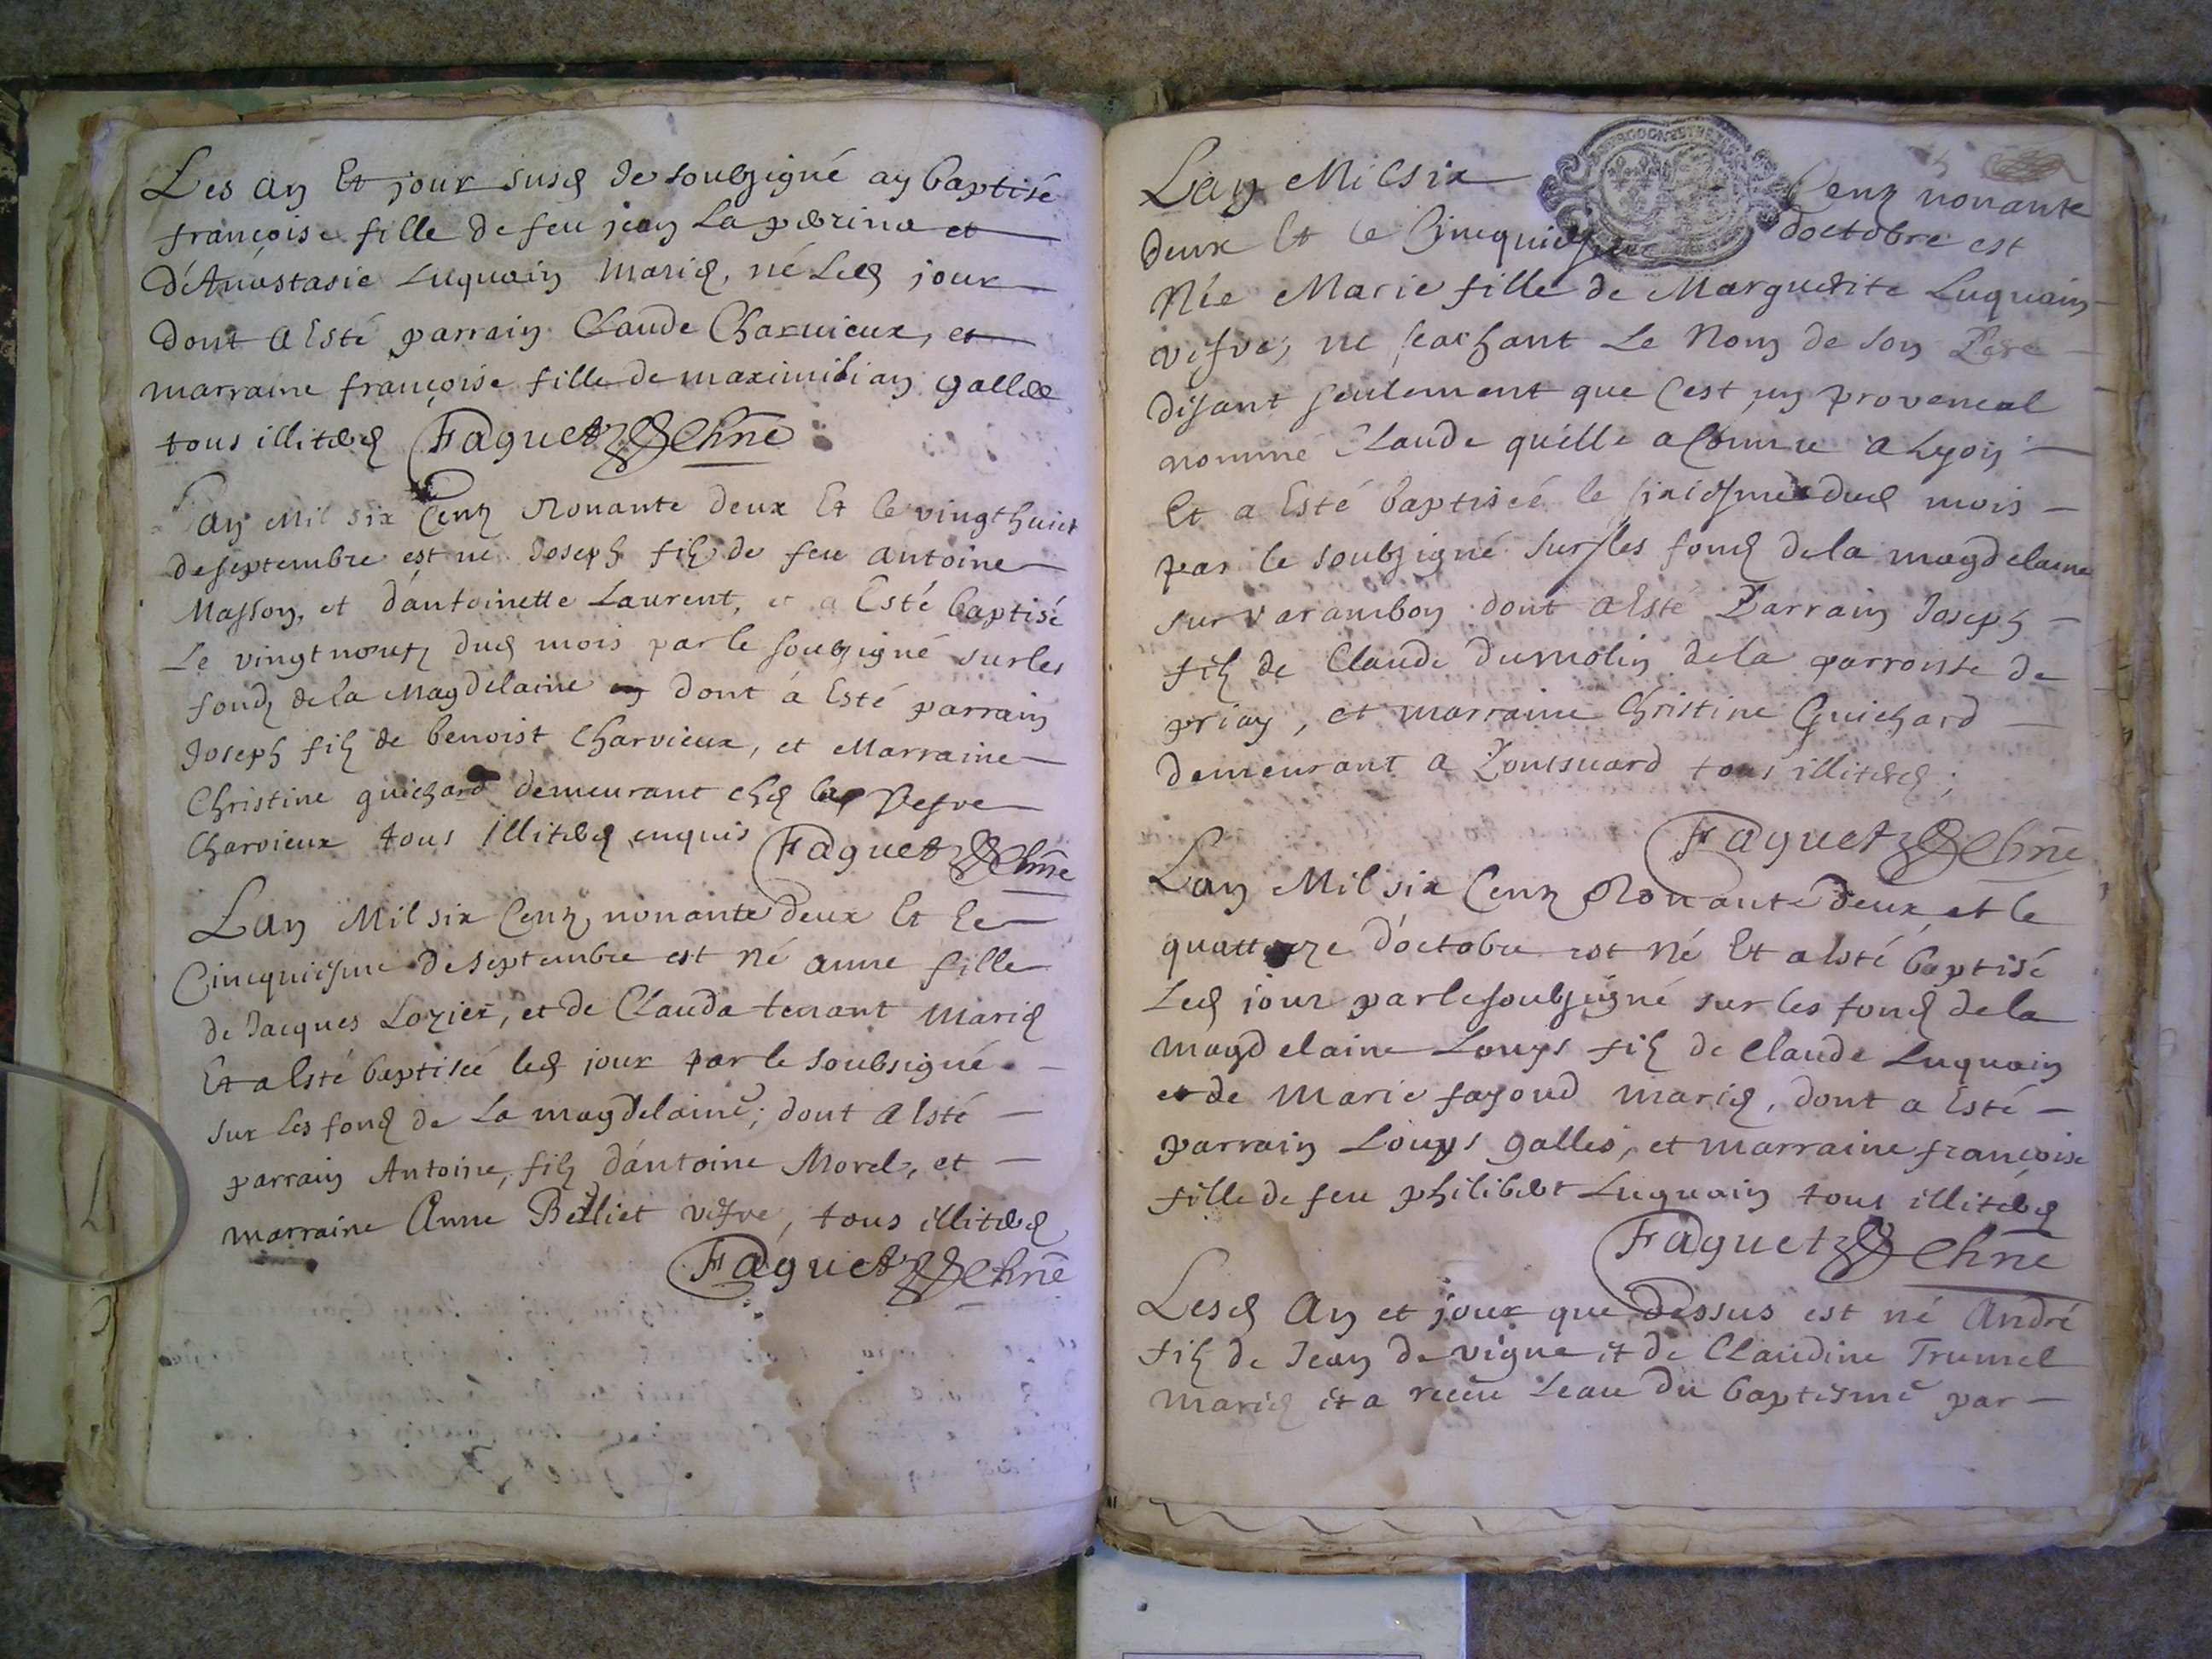 Les an Et jour susd de soubzigné ay baptisé
françoise fille de feu jean Laperrine et
d'Anastasie Luquain Maries, né Led jour
dont a Esté parrain Claude Charvieux, et
marraine françoise fille de maximilian gallee
tous illiteres Faguet chne
Lan Mil six Centz Nonante deux Et le vingthuict
de septembre est né Joseph filz de feu antoine
Masson, et d'antoinette Laurent, et a Esté baptisé
Le vingtneufz dud mois par le soubzigné sur les
fondz de la Magdelaine dont a Esté parrain
Joseph filz de benoist Charvieux, et Marraine
Christine guichard demeurant ches la Vefve
Charvieux tous Illiteres enquis Faguet chne
Lan Mil six Centz nonante deux Et le
Cincquiesme de septembre est né anne fille
de Jacques Lozier, et de Clauda tenant Maries
Et a Esté baptiseé led jour par le soubsigné
sur Les fond de La magdelaine; dont a Esté
parrain Antoine, filz d'antoine Morel, et
marraine Anne Belliet vefve, tous illiteres
Faguet chne
Lan Mil six Centz nonante
deux Et le Cincquiesme d'octobre est
Née Marie fille de Marguerite Luquain
vefve, ne scachant Le Nom de son Pere
disant seulement que c'est un provencal
nommé Claude qu'elle a Connu a Lyon
Et a Esté baptiseé le sixiesme dud mois
par le soubzigné sur les fond de la magdelaine
sur varambon dont a Esté Parrain Joseph
filz de Claude dumolin de la parroisse de
priay, et marraine Christine Guichard
demeurant a tous illiteres;
Faguet chne
Lan Mil six Centz Nonante deux et le
quattorze d'octobre est Né Et a Esté baptisé
Led jour par le soubzigné sur les fond de la
magdelaine Louys filz de Claude Luquain
et de Marie fayoud maries, dont a Esté
parrain Louys galleé, et marraine françoise
fille de feu philibert Luquain tous illiteres
Faguet chne
Lesd An et jour que dessus est né André
filz de Jean de vigne et de Claudine Trumel
maries et a receu Leau du baptesme par